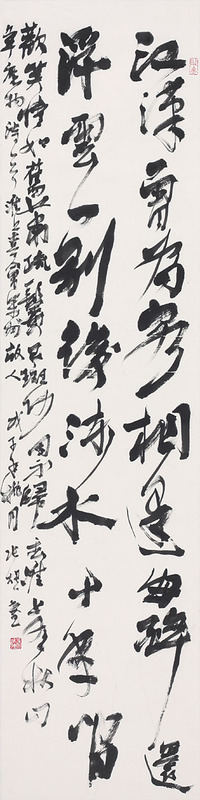 江漢曾為客相逢每醉還
浮雲一別後流水十年間
歡笑情如舊蕭疏鬢已斑何因不歸去淮上有秋山
韋應物詩淮上喜會梁州故人戊子年秋月張